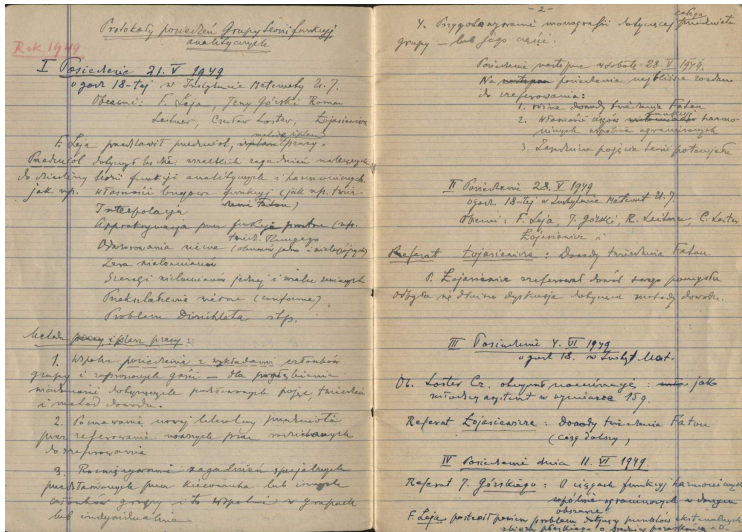 Protokoły posiedzeń Grupy Teorii funkcyj
analitycznych
Rok 1949
I Posiedzenie 21. V 1949
o godz 18-tej w Instytucie Matematy U.J.
Obecni: F. Leja, Jerzy Górski, Roman
Leitner, Czesław Loster, Łojasiewicz
F. Leja przedstawił przedmiot, pracy.
Przedmiot dotyczył będzie wszelkich zagadnień należących
do dziedziny teorii funkcji analitycznych i harmonicznych
jak np. Własności brzegowe funkcyj (jak np. twier-
dzenie Fatou)
Interpolacja
Approksymacja przez funkcje proste (np.
twierdz. Rungego)
Odwzorowania wierne
Zera wielomianów
Szeregi wielomianów jednej i wielu zmiennych
Przekształcenia wierne (conforme)
Problem Dirichleta itp.
Metoda pracy i plan pracy:
1. Wspólne posiedzenia z wykładami członków
grupy i zaproszonych gości — dla pogłębienia
wiadomości dotyczących podstawowych pojęć, twierdzeń
i metod dowodu.
2. Poznawanie nowej literatury przedmiotu
przez referowanie ważnych prac
do referowania
3. Rozwiązywanie zagadnień specjalnych
przedstawionych przez kierownika lub innych
członków grupy i to wspólnie w grupach
lub indywidualnie.
- 2 -
4. Przygotowywanie monografii dotyczącej całego przedmiotu
grupy — lub jego części.
Posiedzenie następne w sobotę 28. V 1949.
Na posiedzenia najbliższe zadano
do zreferowania:
1. różne dowody twierdzenia Fatou
2. Własności ciągów funkcyj harmo-
nicznych wspólnie ograniczonych
3. Zasadnicze pojęcia teorii potencjału
II Posiedzenie 28. V 1949
o godz. 18-tej w Instytucie Matemat U.J.
Obecni: F. Leja, J. Górski, R. Leitner, C. Loster
Łojasiewicz
Referat Łojasiewicza: Dowody twierdzenia Fatou
P. Łojasiewicz zreferował dowód swego pomysłu
Odbyła się dłuższa dyskusja dotycząca metody dowodu.
III Posiedzenie 4. VI 1949
o godz 18. w Instyt. Mat.
Ob. Loster Cz. otrzymał jako
młodszy asystent w wymiarze 15 g.
Referat Łojasiewicza: Dowody twierdzenia Fatou
(Ciąg dalszy)
IV Posiedzenie dnia 11. VI 1949.
Referat J. Górskiego: O ciągach funkcyj harmonicznych
wspólnie ograniczonych w danym
obszarze.
F. Leja postawił problem dotyczący punktów ekstremalnych